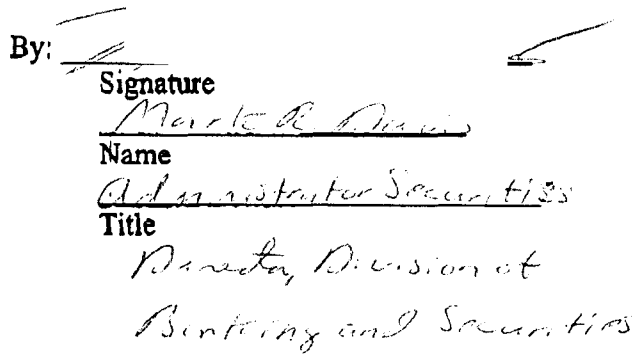 By:
Signature
Mark R Davis
Name
Administrator Securities
Title
Director, Division of
Banking and Securities